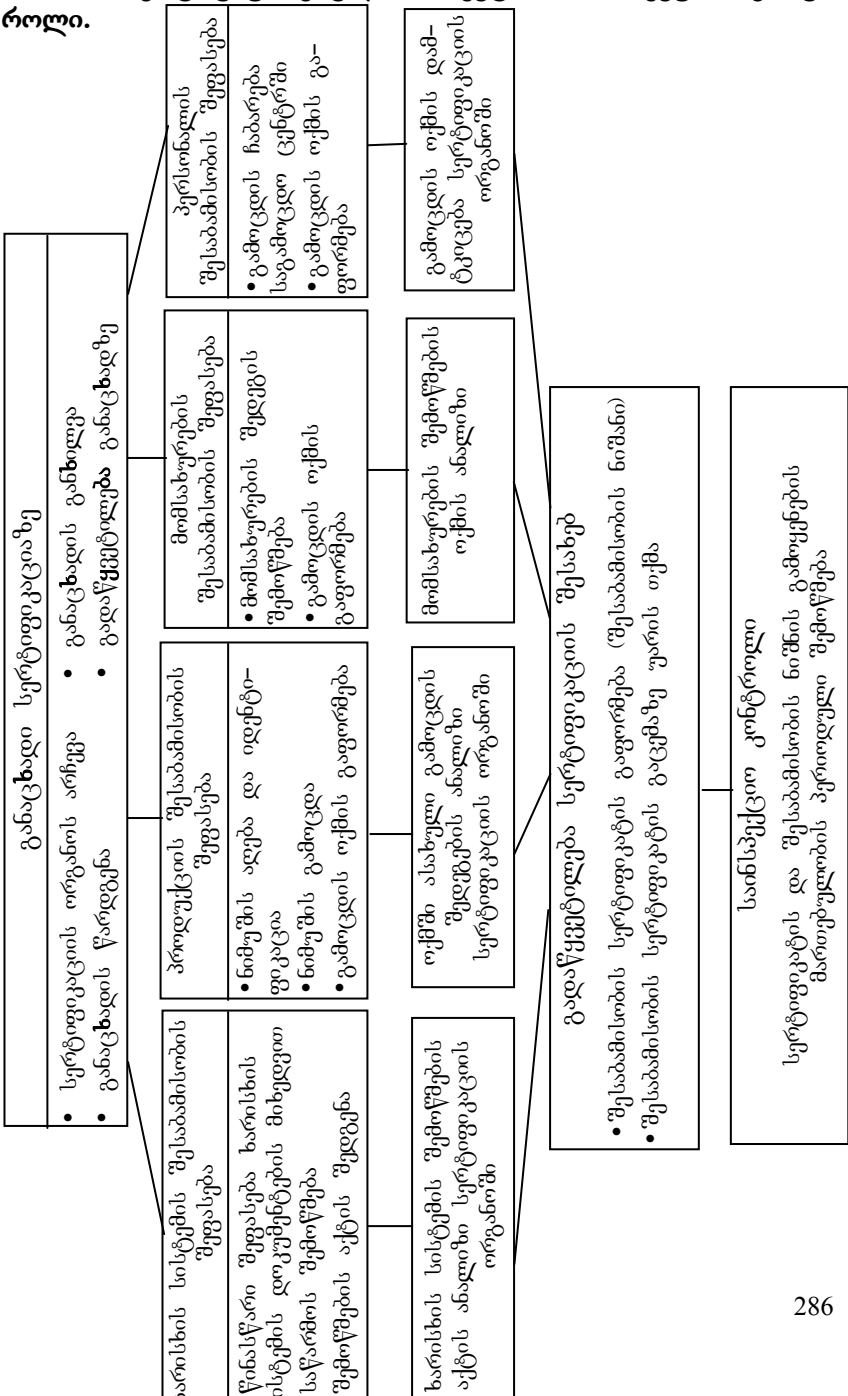 როლი.
განაცხადი სერტიფიკაციაზე
• სერტიფიკაციის ორგანოს არჩევა
• განაცხადის წარდგენა
• განაცხადის განხილვა
• გადაწყვეტილება განაცხადზე
ხარისხის სისტემის შესაბამისობის
შეფასება
წინასწარი შეფასება ხარისხის
სისტემის დოკუმენტების მიხედვით
საწარმოს შემოწმება
შემოწმების აქტის შედგენა
პროდუქციის შესაბამისობის
შეფასება
• ნიმუშის აღება და იდენტი–
ფიკაცია
• ნიმუშის გამოცდა
• გამოცდის ოქმის გაფორმება
მომსახურების
შესაბამისობის შეფასება
• მომსახურების შედეგის
შემოწმება
• გამოცდის ოქმის
გაფორმება
პერსონალის
შესაბამისობის შეფასება
• გამოცდის ჩაბარება
საგამოცდო ცენტრში
• გამოცდის ოქმის გა–
ფორმება
ხარისხის სისტემის შემოწმების
აქტის ანალიზი სერტიფიკაციის
ორგანოში
ოქმში ასახული გამოცდის
შედეგების ანალიზი
სერტიფიკაციის ორგანოში
მომსახურების შემოწმების
ოქმის ანალიზი
გამოცდის ოქმის დამ–
ტკიცება სერტიფიკაციის
ორგანოში
გადაწყვეტილება სერტიფიკაციის შესახებ
• შესაბამისობის სერტიფიკატის გაფორმება (შესაბამისობის ნიშანი)
• შესაბამისობის სერტიფიკატის გაცემაზე უარის თქმა
საინსპექციო კონტროლი
სერტიფიკატის და შესაბამისობის ნიშნის გამოყენების
მართებულობის პერიოდული შემოწმება
286